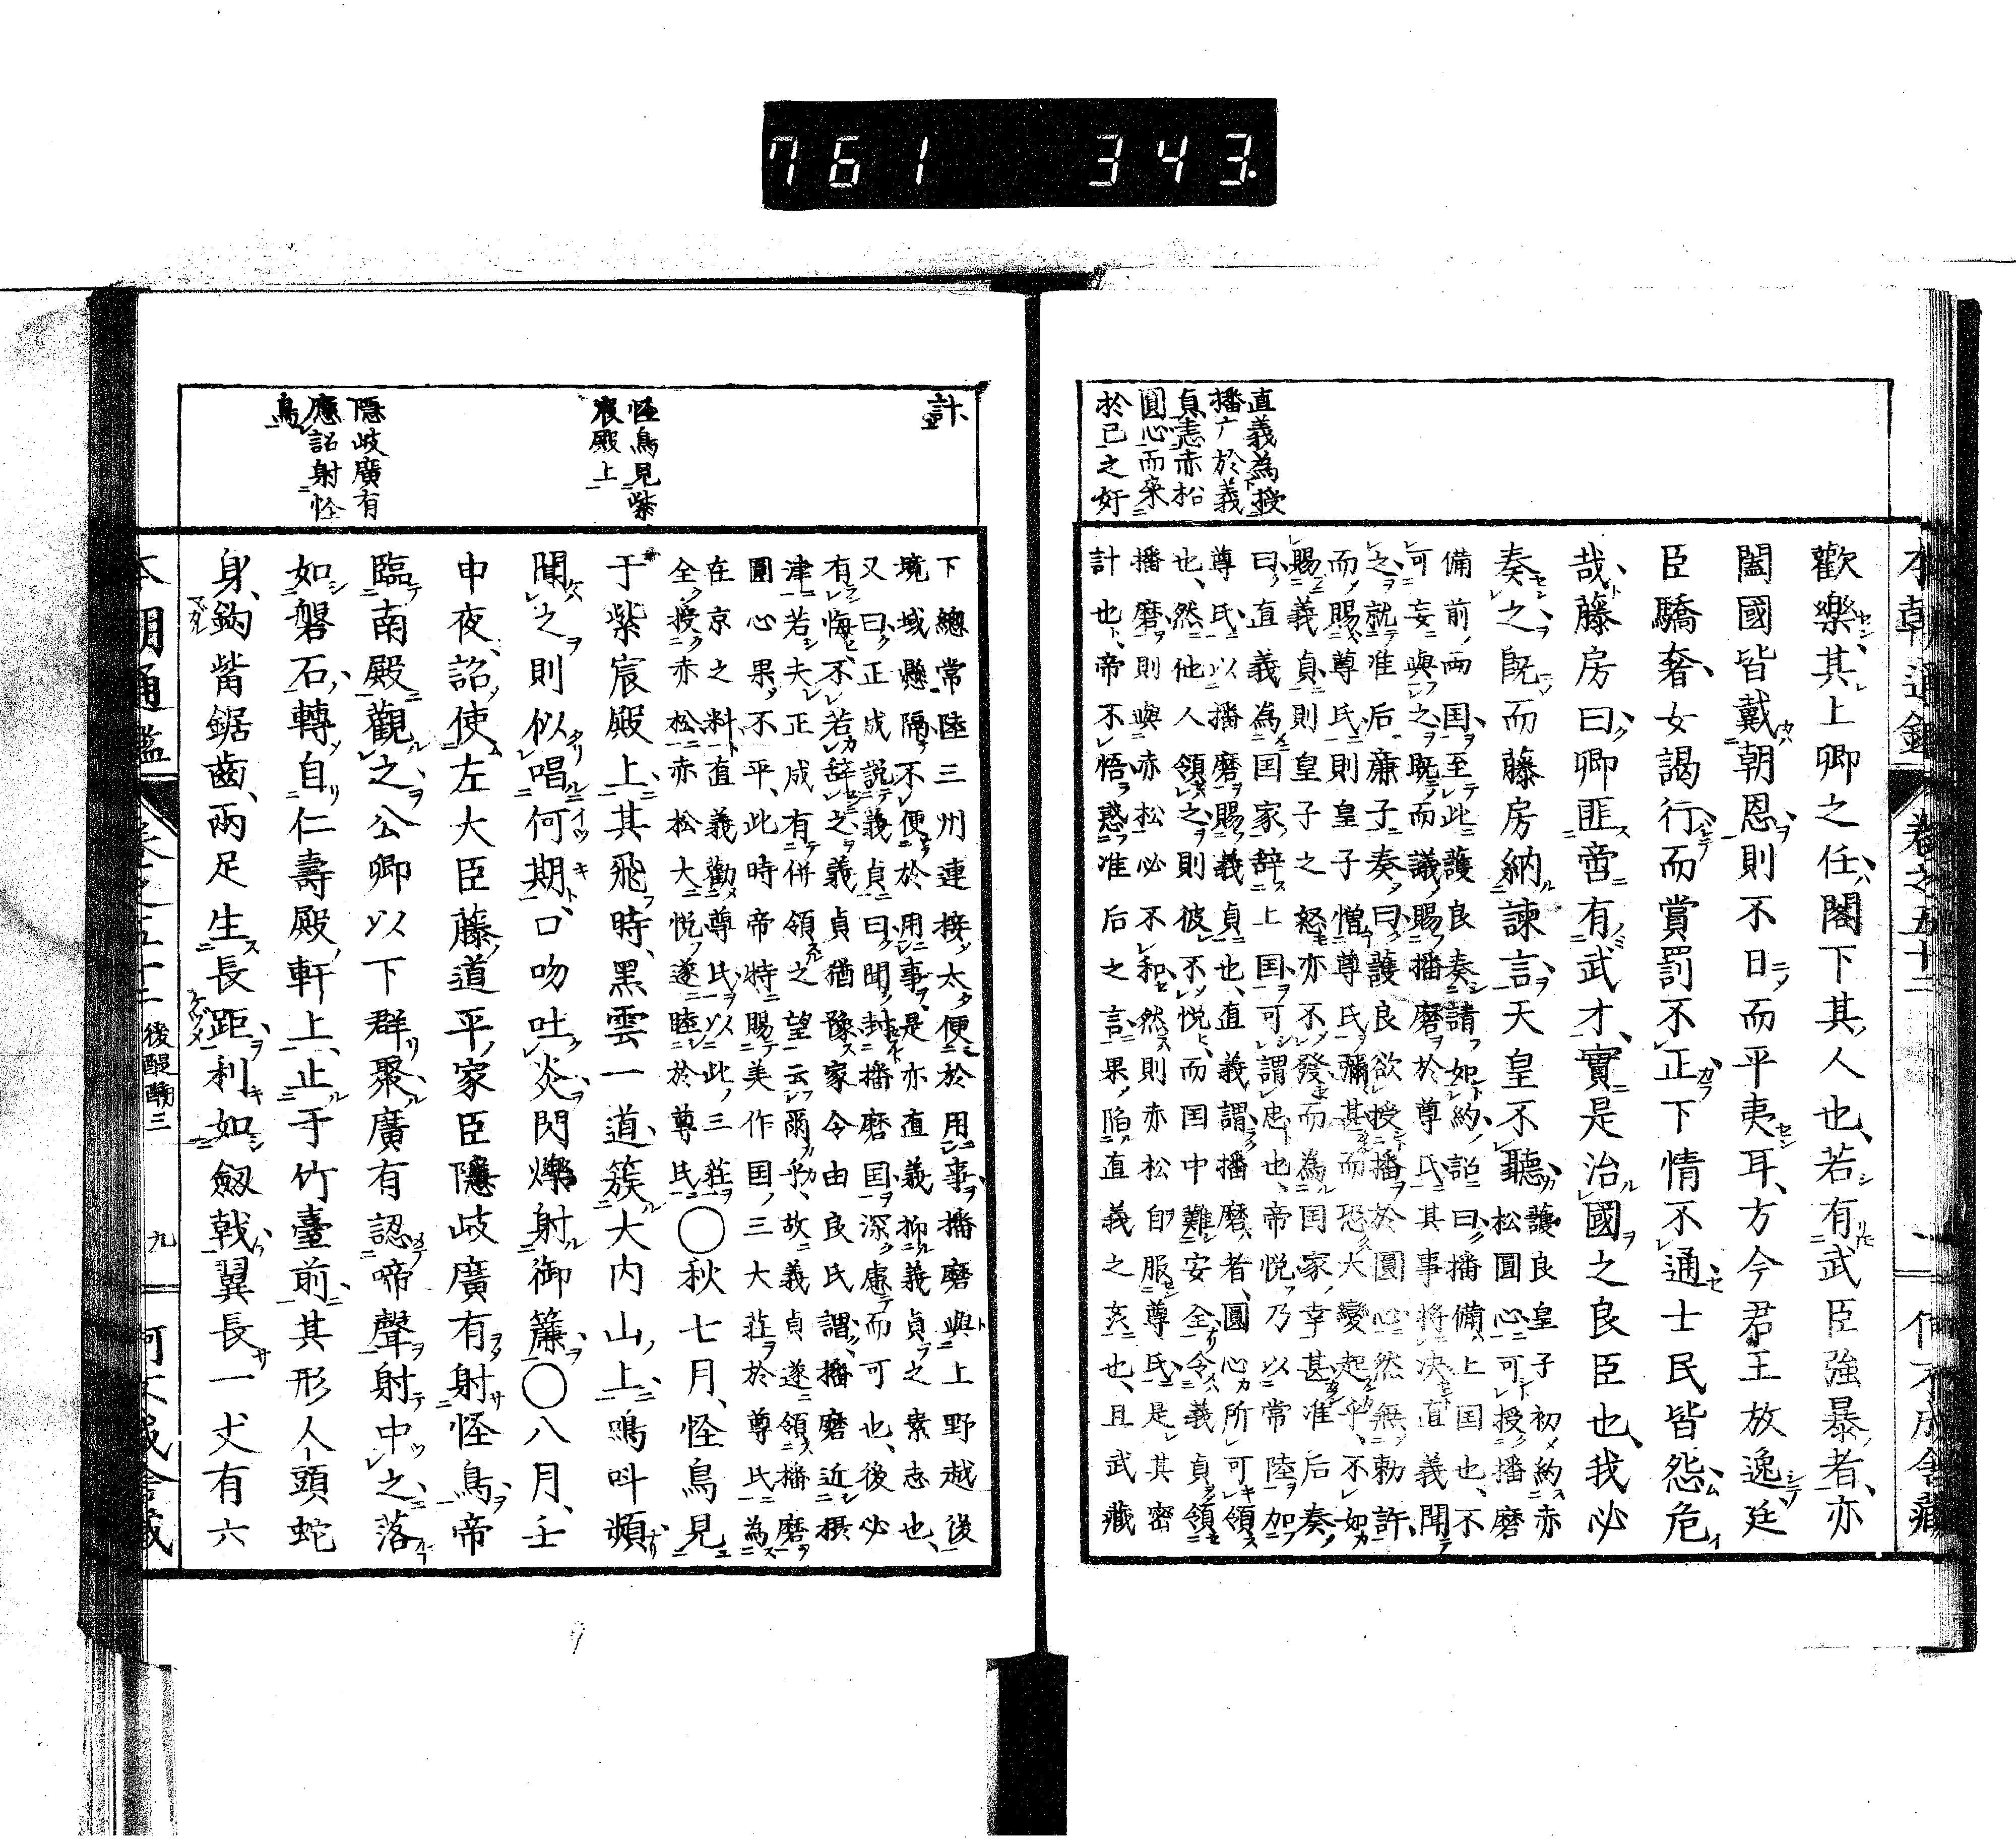 761 343
本朝通鑑 卷之五十二
歡樂其上卿之任閣下其人也、若有武臣強暴者、亦
闔國皆戴朝恩則不日而平夷耳、方今君王放逸廷
臣驕奢、女謁行而賞罰不正下情不通士民皆怨危
哉、藤房曰卿匪啻有武才、實是治國之良臣也、我必
奏之既而藤房納諫言天皇不聽護良皇子初約赤松圓心可授播磨
備前兩国至此護良奏請如約詔曰播備上国也、不
可妄與之既而議賜播磨於尊氏其事將決直義聞
之就准后廉子奏曰護良欲授播於圓心然無勅許、
而賜尊氏則皇子憎尊氏彌甚而恐大變起乎、不如
賜義貞則皇子之怒亦不發而為国家幸甚准后奏
曰直義為国家辞上国可謂忠也、帝悦乃以常陸加
尊氏以播磨賜義貞也、直義謂播磨者、圓心所可領
也、然他人領之則彼不悦、而国中難安全令義貞領
播磨則與赤松必不和然則赤松自服尊氏是其密
計也、帝不悟惑准后之言果陷直義之亥也、且武藏
直義為授
播广於義
貞憲赤松
圓心而来
於已之好
計
下總常陸三州連接太便於用事播磨與上野越後
境域懸隔不便於用事是亦直義抑義貞之素志也、
又曰正成説義貞曰聞封播磨国深慮而可也、後必
有悔不若辞之義貞猶豫家令由良氏謂播磨近摂
津若夫正成有併領之望云爾乎、故義貞遂領播磨
圓心果不平、此時帝特賜美作国三大莊於尊氏為
在京之料直義勸尊氏以此三莊
全授赤松赤松大悦遂睦於尊氏〇秋七月、怪鳥見
于紫宸殿上、其飛時、黑雲一道、簇大内山上鳴呌頻
聞之則似唱何期口吻吐炎閃爍射御簾〇八月、壬
申夜、詔使左大臣藤道平家臣隱岐廣有射怪鳥帝
臨南殿觀之公卿以下群聚廣有認啼聲射中之落
如磐石轉自仁壽殿軒上、止于竹臺前其形人頭蛇
身、鈎觜鋸齒、兩足生長距利如劔戟翼長一丈有六
怪鳥見紫
宸殿上
隱岐廣有
應詔射怪
鳥
本朝通鑑 卷之五十二 後醍醐三 九